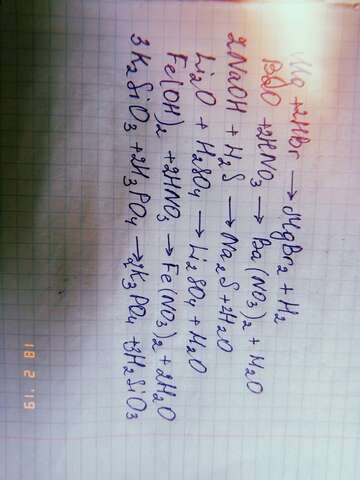 Mg + 2HBr → MgBr2 + H2
BaO + 2HNO3 → Ba(NO3)2 + H2O
2NaOH + H2S → Na2S + 2H2O
Li2O + H2SO4 → Li2SO4 + H2O
Fe(OH)2 + 2HNO3 → Fe(NO3)2 + 2H2O
3K2SiO3 + 2H3PO4 → 2K3PO4 + 3H2SiO3
18 2.19